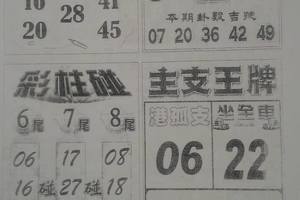 16 28 41
20 45
本期卦數吉號
07 20 36 42 49
彩柱碰
6尾 7尾 8尾
06 17 08
16碰27碰18
主支王牌
港孤支 坐全車
06 22